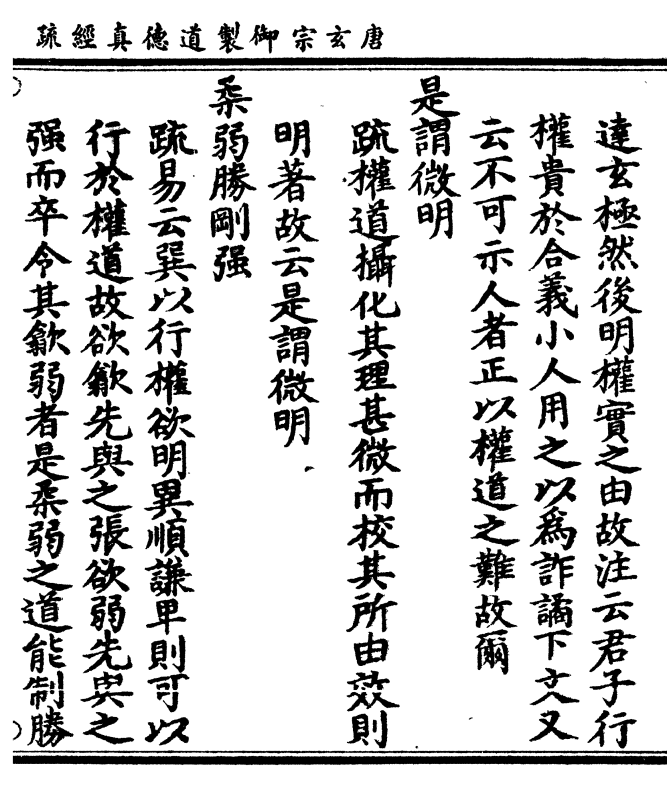 唐玄宗御製道德真經疏
達玄極然後明權實之由故注云君子行
權貴於合義小人用之以爲詐譎下文又
云不可示人者正以權道之難故爾
是謂微明
疏權道攝化其理甚微而校其所由效則
明著故云是謂微明
柔弱勝剛强
疏易云巽以行權欲明異順謙卑則可以
行於權道故欲歙先與之張欲弱先與之
强而卒令其歙弱者是柔弱之道能制勝